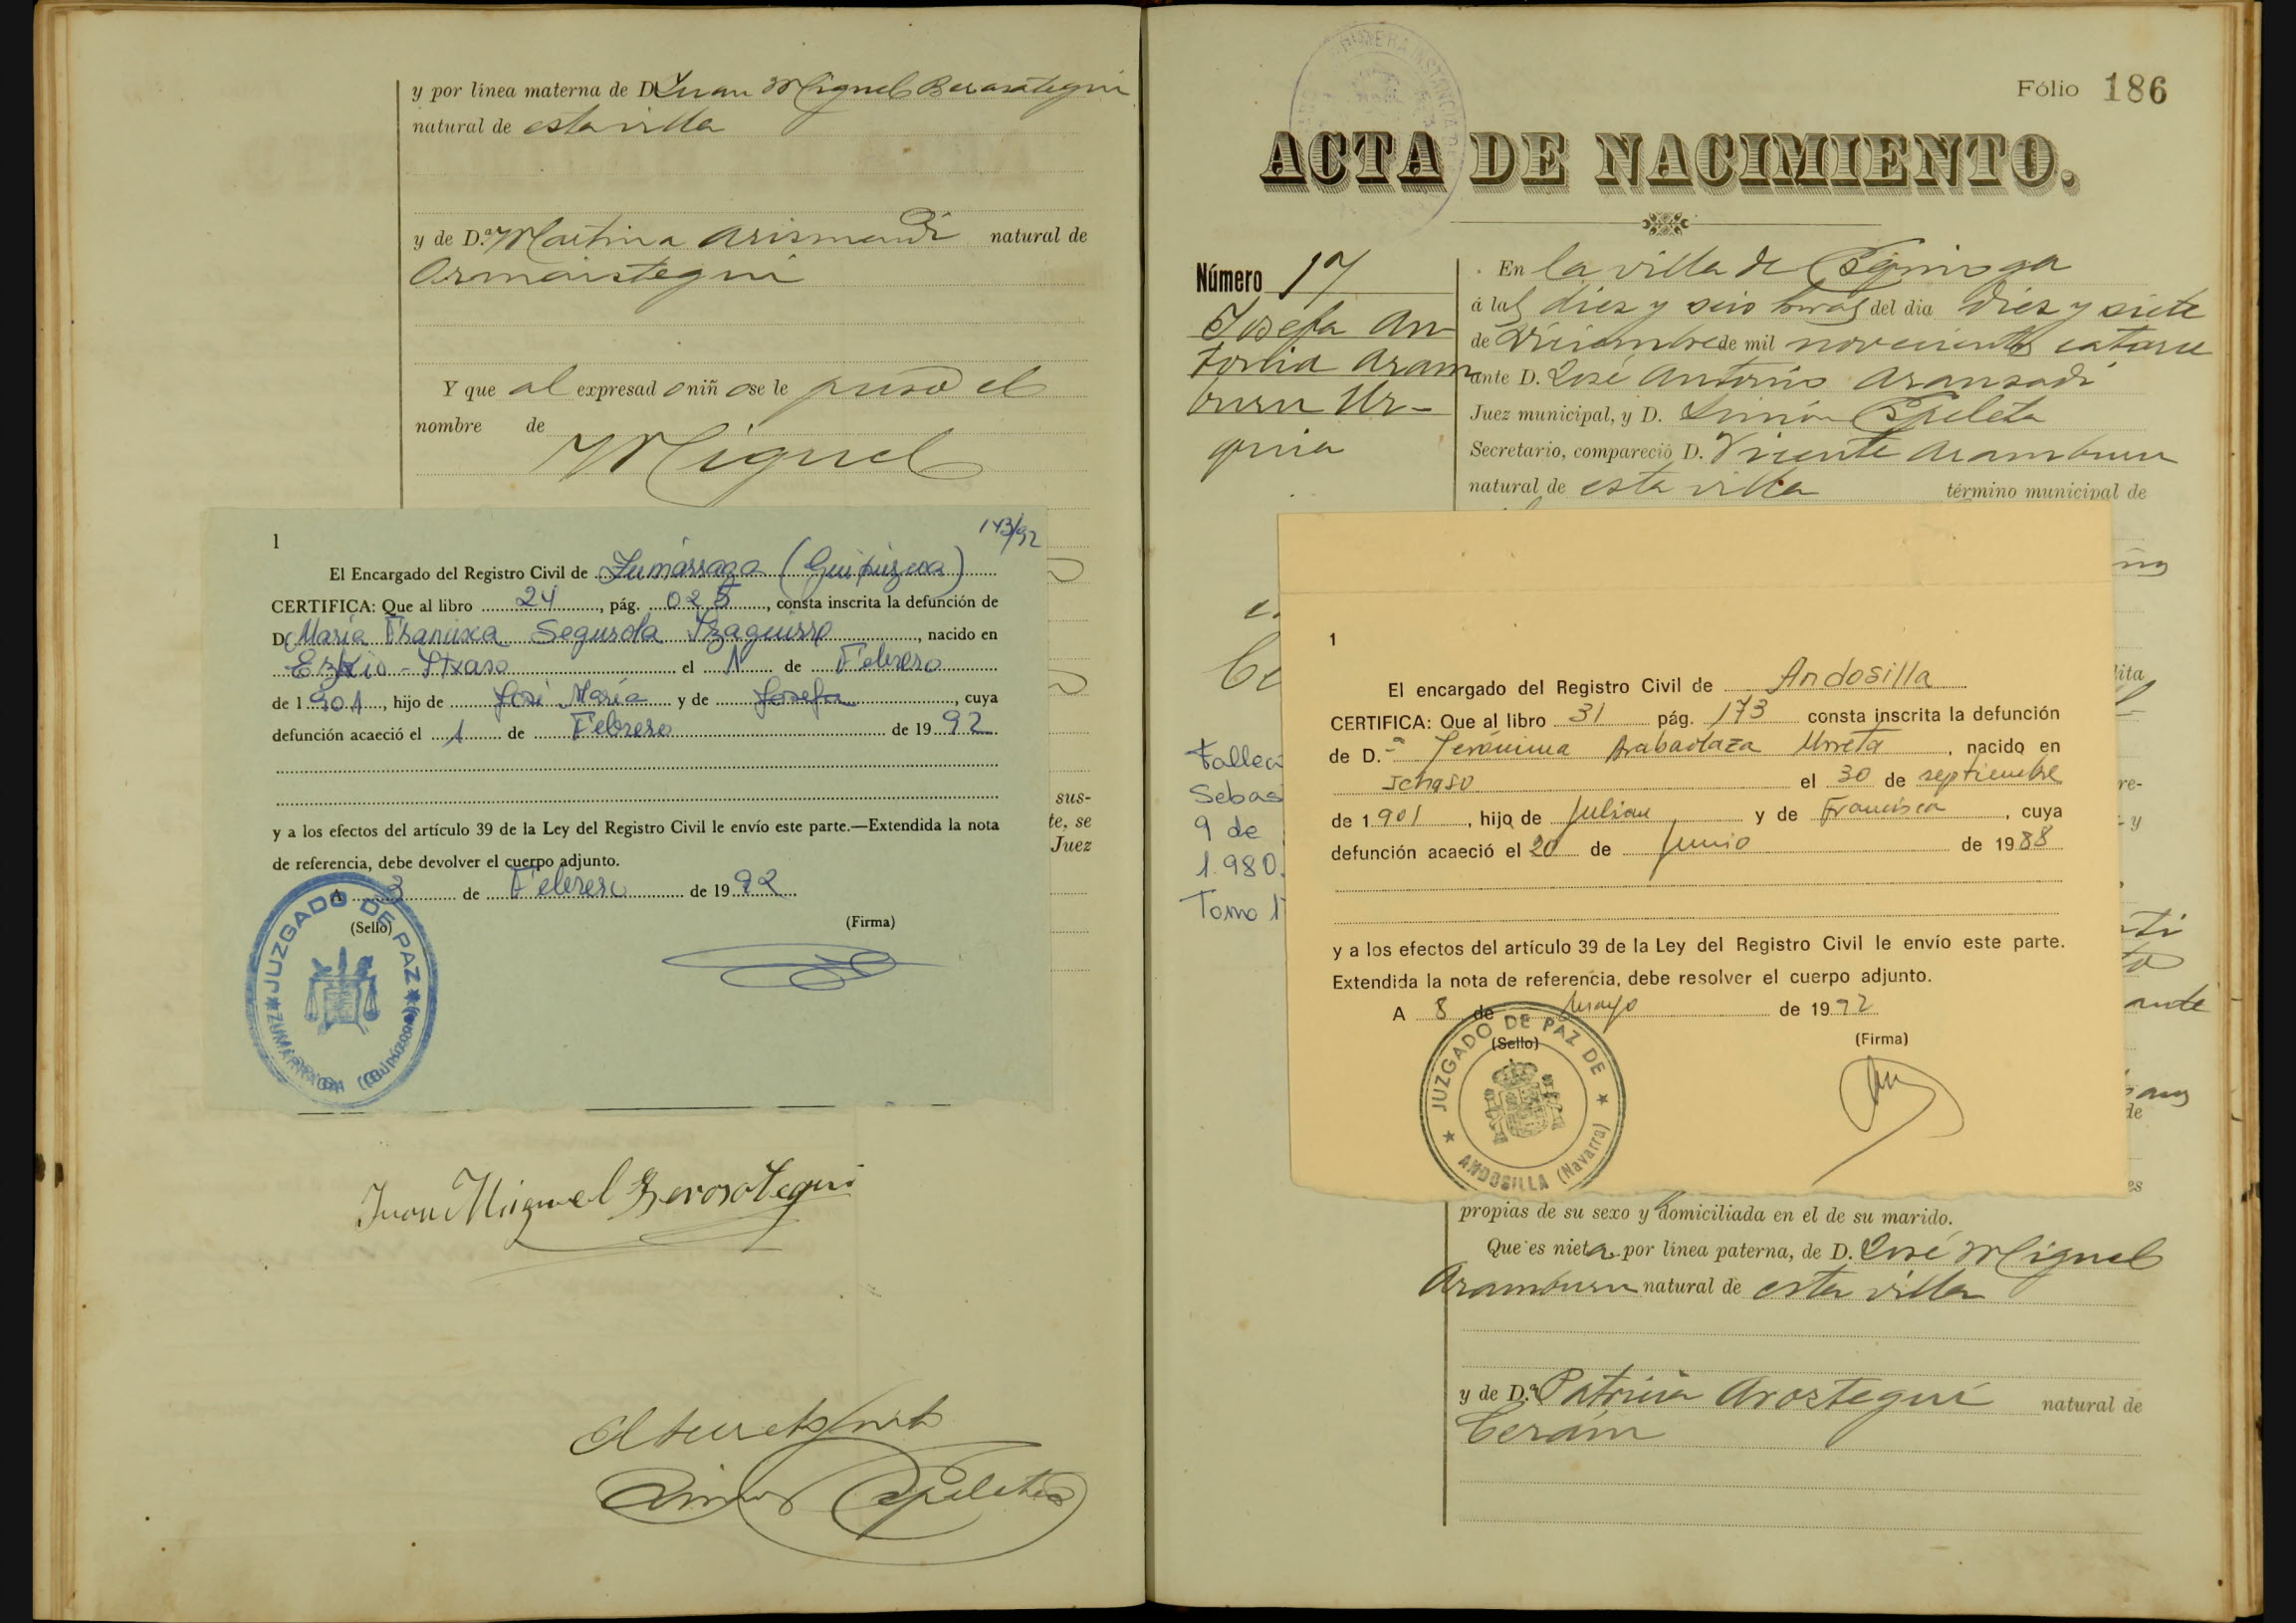 y por línea materna de D. Juan Miguel Berasategui
natural de esta villa
y de D.ª Martina Arismendi natural de
Ormaiztegui
Y que al expresad o niñ o se le puso el
nombre de
Miguel
1
143/92
El Encargado del Registro Civil de Zumárraga (Guipúzcoa)
CERTIFICA: Que al libro 24, pág. 025, consta inscrita la defunción de
D. María Francisca Segurola Izaguirre, nacido en
Ezkio-Itxaso el 1 de Febrero
de 1901, hijo de José María y de Josefa, cuya
defunción acaeció el 1 de Febrero de 1992
y a los efectos del artículo 39 de la Ley del Registro Civil le envío este parte.—Extendida la nota
de referencia, debe devolver el cuerpo adjunto.
A 3 de Febrero de 1992
(Sello)
(Firma)
JUZGADO DE PAZ
ZUMARRAGA (Guipúzcoa)
sus-
te, se
Juez
Juan Miguel Berasategui
Simón Ezpeleta
Fólio 186
ACTA DE NACIMIENTO.
Número 17
Josefa An-
tonia Aram
buru Ur-
quia
En la villa de Ezquioga
á las diez y seis horas del dia diez y siete
de Diciembre de mil novecientos catorce
ante D. José Antonio Aranzadi
Juez municipal, y D. Simón Ezpeleta
Secretario, compareció D. Vicente Aramburu
natural de esta villa término municipal de
Sebas
9 de
1.980.
Tomo 1
1
El encargado del Registro Civil de Andosilla
CERTIFICA: Que al libro 31 pág. 173 consta inscrita la defunción
de D.ª Jerónima Arabaolaza Urreta, nacido en
Ichaso el 30 de septiembre
de 1901, hijo de Julian y de Francisca, cuya
defunción acaeció el 20 de Junio de 1988
y a los efectos del artículo 39 de la Ley del Registro Civil le envío este parte.
Extendida la nota de referencia, debe resolver el cuerpo adjunto.
A 8 de Mayo de 1992
(Sello)
(Firma)
JUZGADO DE PAZ DE
ANDOSILLA (Navarra)
lita
re-
y
ante
de
es
propias de su sexo y domiciliada en el de su marido.
Que es nieta por línea paterna, de D. José Miguel
Aramburu natural de esta villa
y de D.ª Patricia Arostegui natural de
Cerain